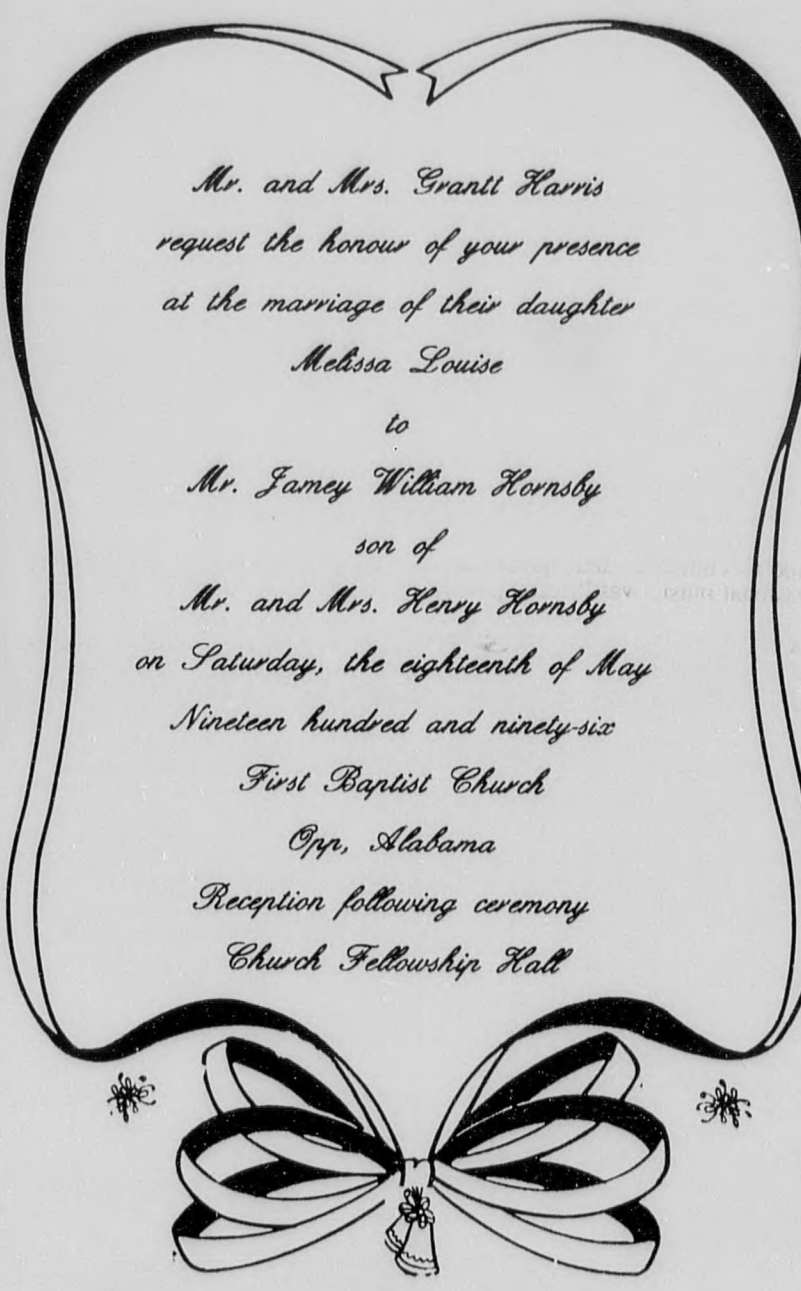 Mr. and Mrs. Grantt Harris
request the honour of your presence
at the marriage of their daughter
Melissa Louise
to
Mr. Jamey William Hornsby
son of
Mr. and Mrs. Henry Hornsby
on Saturday, the eighteenth of May
Nineteen hundred and ninety-six
First Baptist Church
Opp, Alabama
Reception following ceremony
Church Fellowship Hall